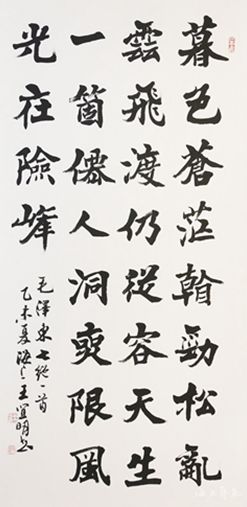 暮色蒼茫翰勁松亂
雲飛渡仍從容天生
一箇僊人洞奭限風
光在險峰
毛澤東七絕一首
乙未夏海王宜明書